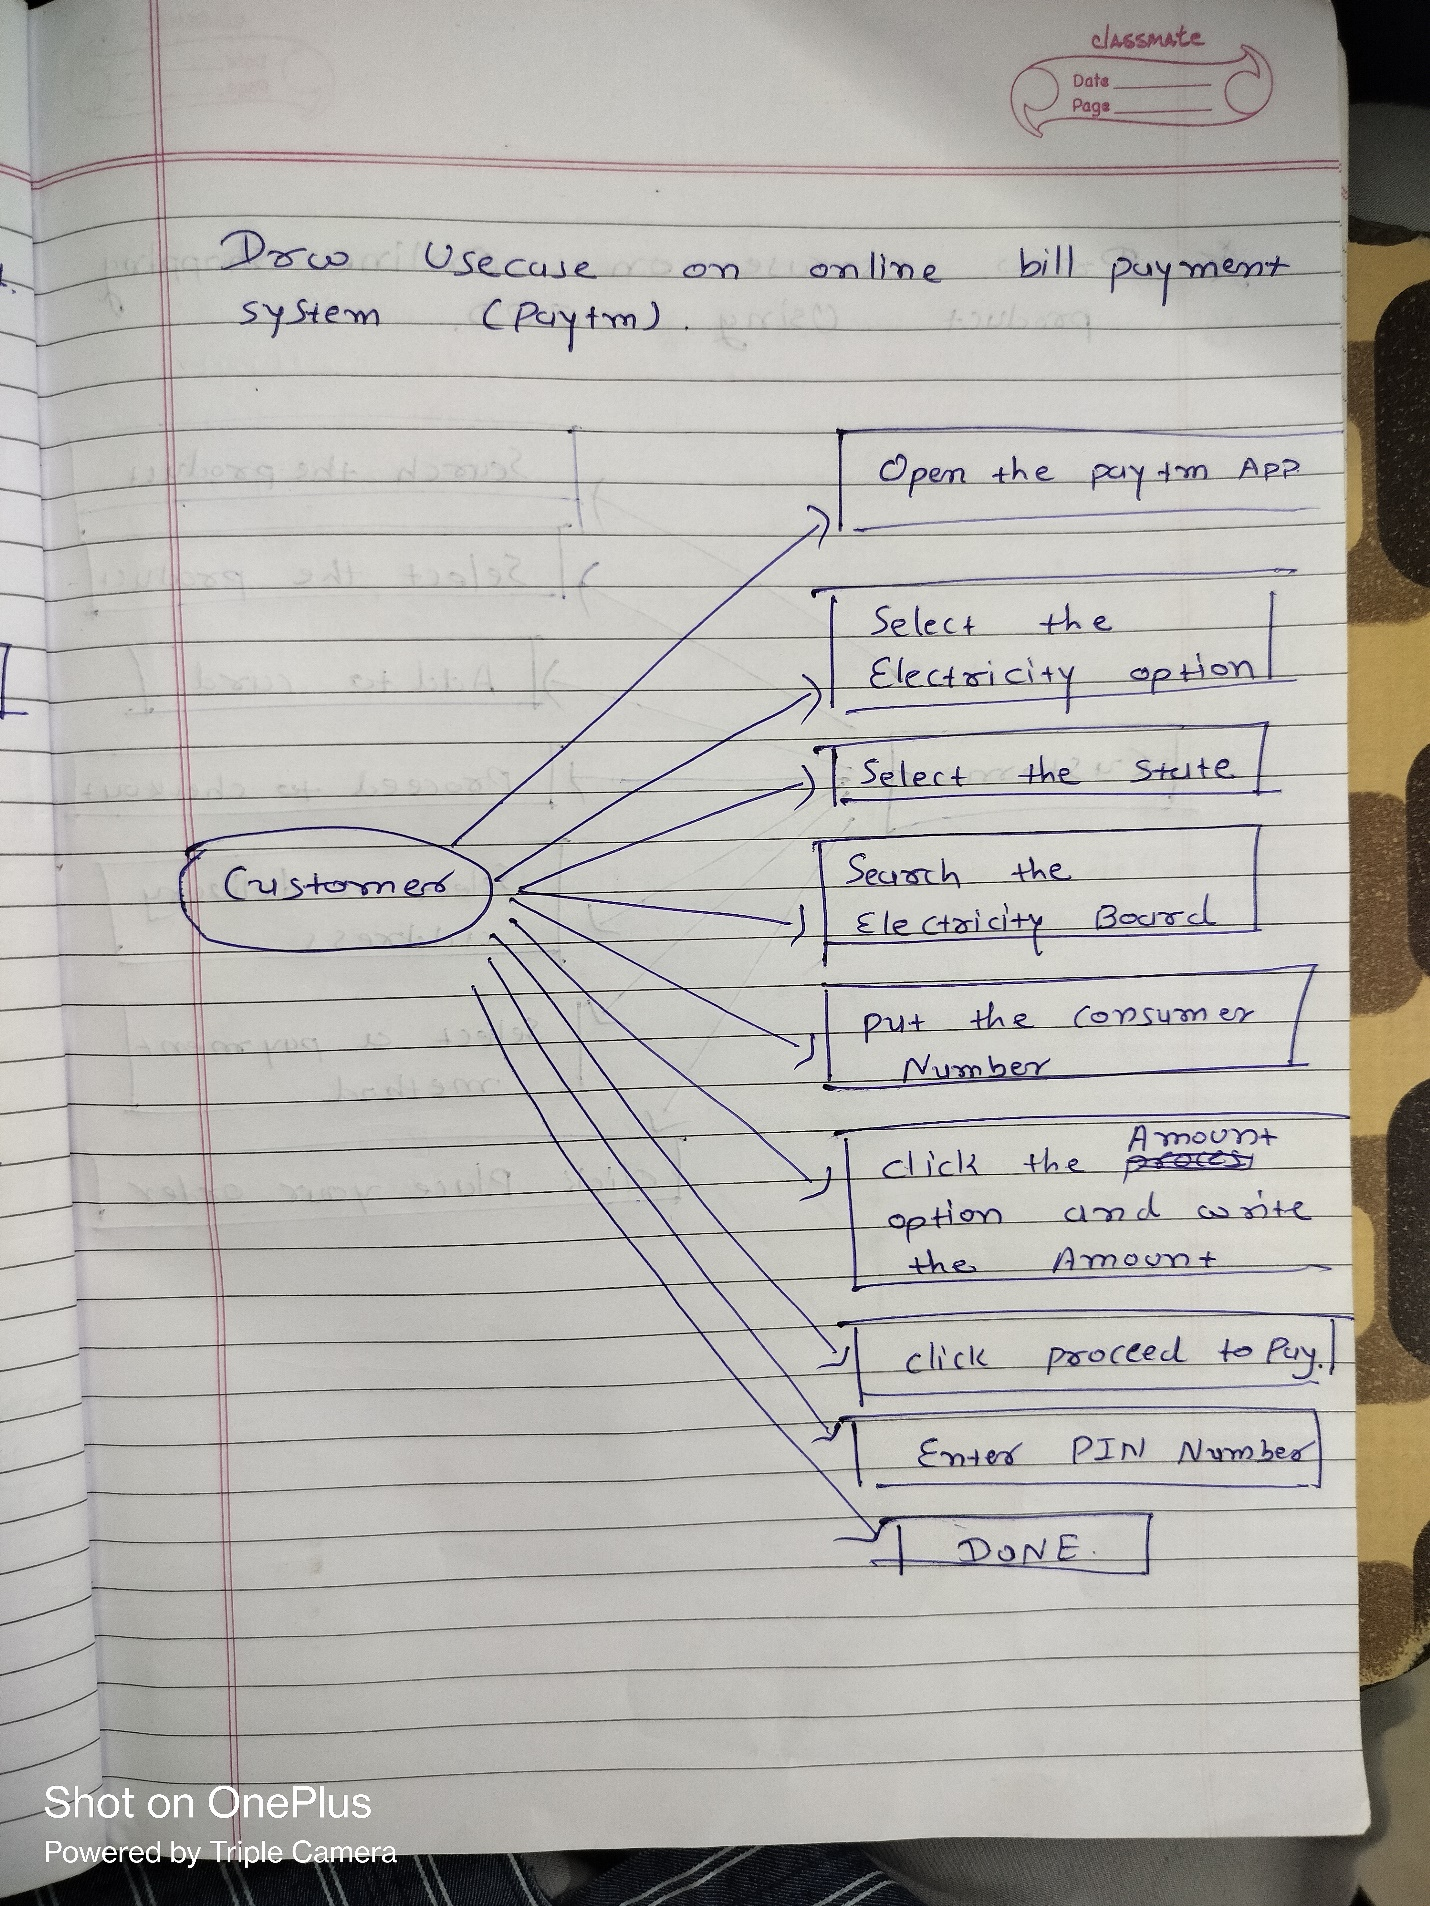 classmate
Date
Page
Drow Usecase on online bill payment
system (Paytm).
Open the paytm App
Select the
Electricity option
Select the State
Customer
Search the
Electricity Board
put the consumer
Number
Amount
click the
option and write
the Amount
click proceed to Pay.
Enter PIN Number
DONE.
Shot on OnePlus
Powered by Triple Camera